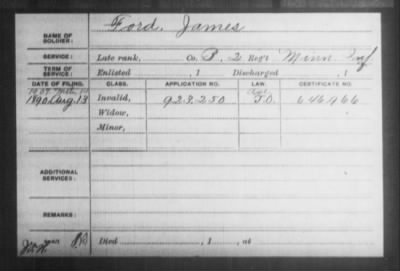 NAME OF SOLDIER: Ford, James
SERVICE: Late rank, Co. B, 2 Reg't Minn Inf
TERM OF SERVICE: Enlisted , 1 Discharged , 1
DATE OF FILING. CLASS. APPLICATION NO. LAW. CERTIFICATE NO.
1890 Aug. 13 Invalid, 923.250 646.966
Widow,
Minor,
ADDITIONAL SERVICES:
REMARKS:
Died , 1 , at